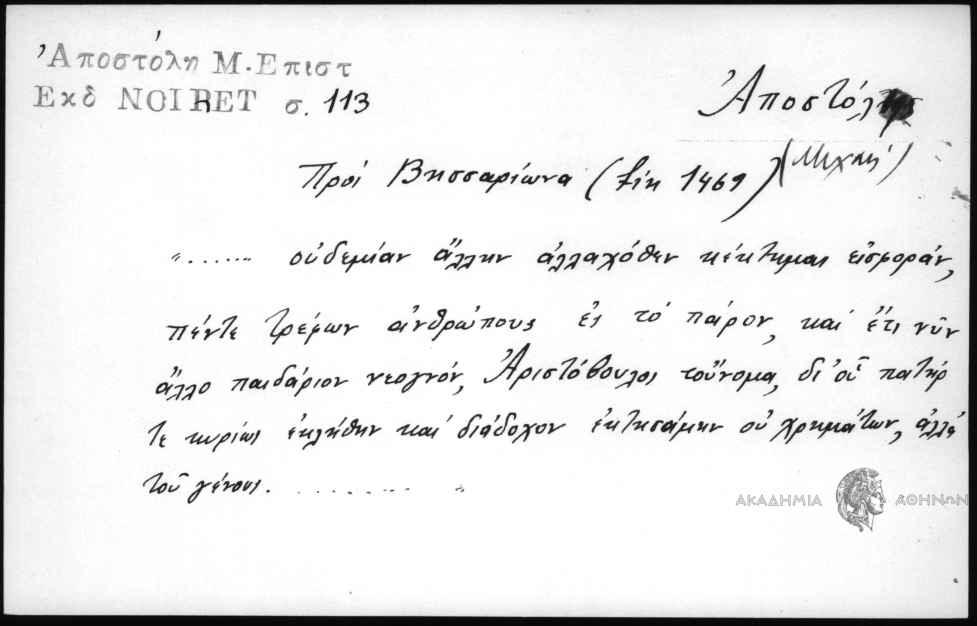 Ἀποστόλη Μ. Επιστ
Εκδ NOIRET σ. 113
Ἀποστόλης
(Μιχαήλ)
Πρὸς Βησσαρίωνα (fin 1469)
"...... οὐδεμίαν ἄλλην ἀλλαχόθεν κέκτημαι εἰσφοράν,
πέντε τρέφων ἀνθρώπους ἐς τὸ πάρον, καὶ ἔτι νῦν
ἄλλο παιδάριον νεογνόν, Ἀριστόβουλος τοὔνομα, δι' οὗ πατήρ
τε κυρίως ἐκλήθην καὶ διάδοχον ἐκτησάμην οὐ χρημάτων, ἀλλὰ
τοῦ γένους. ......... "
ΑΚΑΔΗΜΙΑ ΑΘΗΝΩΝ